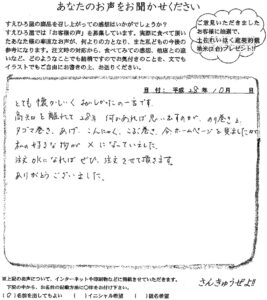 あなたのお声をお聞かせください
すえひろ屋の商品を召し上がっての感想はいかがでしょうか？
すえひろ屋では「お客様の声」を募集しています。実際に食べて頂い
たあなた様の率直なお声が、何よりの力となり、また私どもの今後の
参考になります。注文時の対応から、食べてみての感想、他店との違
いなど、どのようなことでも結構ですのでお気付きのことを、文でも
イラストでもご自由にお書きの上、お送りください。
ご意見いただきました
お客様に抽選で、
プレゼント!!
日付：平成 28年 10月 日
とても懐かしく おいしかったの一言です。
高知を離れて28年 何かあれば思い
タマゴ巻き、あげ、こんにゃく、こぶ巻き、今ホームページを見ましたが
私の好きな物が×になっていました。
注文OKになればぜひ、注文させて頂きます。
ありがとうございました。
※上記のお声について、インターネットや印刷物などに掲載させていただきます。
下記の中から、お名前の記載方法に〇印をお付け下さい。
(〇)名前を出してもよい ( )イニシャル希望 ( )匿名希望
さんきゅうぜよ!!